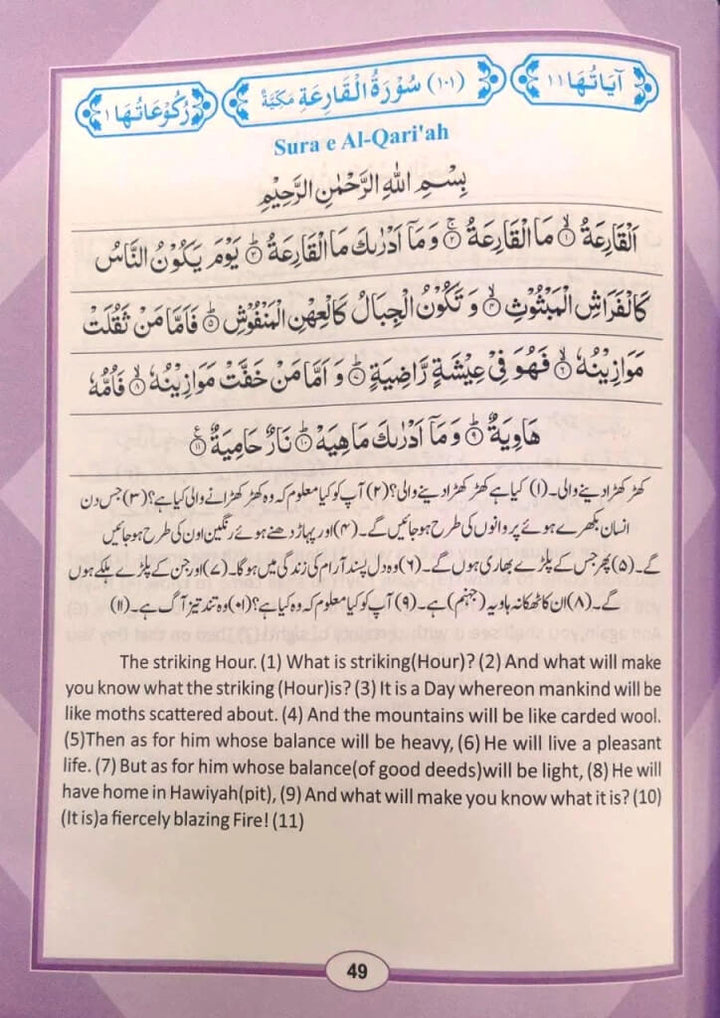 اٰيَاتُهَا ١١
(١٠١) سُوْرَةُ الْقَارِعَةِ مَكِّيَّةٌ
رُكُوْعَاتُهَا ١
Sura e Al-Qari'ah
بِسْمِ اللهِ الرَّحْمٰنِ الرَّحِيْمِ
اَلْقَارِعَةُ ۙ﴿١﴾ مَا الْقَارِعَةُ ۚ﴿٢﴾ وَ مَاۤ اَدْرٰىكَ مَا الْقَارِعَةُ ؕ﴿٣﴾ يَوْمَ يَكُوْنُ النَّاسُ
كَالْفَرَاشِ الْمَبْثُوْثِ ۙ﴿٤﴾ وَ تَكُوْنُ الْجِبَالُ كَالْعِهْنِ الْمَنْفُوْشِ ؕ﴿٥﴾ فَاَمَّا مَنْ ثَقُلَتْ
مَوَازِيْنُهٗ ۙ﴿٦﴾ فَهُوَ فِيْ عِيْشَةٍ رَّاضِيَةٍ ؕ﴿٧﴾ وَ اَمَّا مَنْ خَفَّتْ مَوَازِيْنُهٗ ۙ﴿٨﴾ فَاُمُّهٗ
هَاوِيَةٌ ؕ﴿٩﴾ وَ مَاۤ اَدْرٰىكَ مَا هِيَهْ ؕ﴿١٠﴾ نَارٌ حَامِيَةٌ ﴿١١﴾
کھڑ کھڑا دینے والی۔ (۱) کیا ہے کھڑ کھڑا دینے والی؟ (۲) آپ کو کیا معلوم کہ وہ کھڑ کھڑانے والی کیا ہے؟ (۳) جس دن
انسان بکھرے ہوئے پروانوں کی طرح ہوجائیں گے۔ (۴) اور پہاڑ دھنے ہوئے رنگین اون کی طرح ہوجائیں
گے۔ (۵) پھر جس کے پلڑے بھاری ہوں گے۔ (۶) وہ دل پسند آرام کی زندگی میں ہوگا۔ (۷) اور جن کے پلڑے ہلکے ہوں
گے۔ (۸) ان کا ٹھکانہ ہاویہ (جہنم) ہے۔ (۹) آپ کو کیا معلوم کہ وہ کیا ہے؟ (۱۰) وہ تند تیز آگ ہے۔ (۱۱)
The striking Hour. (1) What is striking(Hour)? (2) And what will make
you know what the striking (Hour)is? (3) It is a Day whereon mankind will be
like moths scattered about. (4) And the mountains will be like carded wool.
(5)Then as for him whose balance will be heavy, (6) He will live a pleasant
life. (7) But as for him whose balance(of good deeds)will be light, (8) He will
have home in Hawiyah(pit), (9) And what will make you know what it is? (10)
(It is)a fiercely blazing Fire! (11)
49